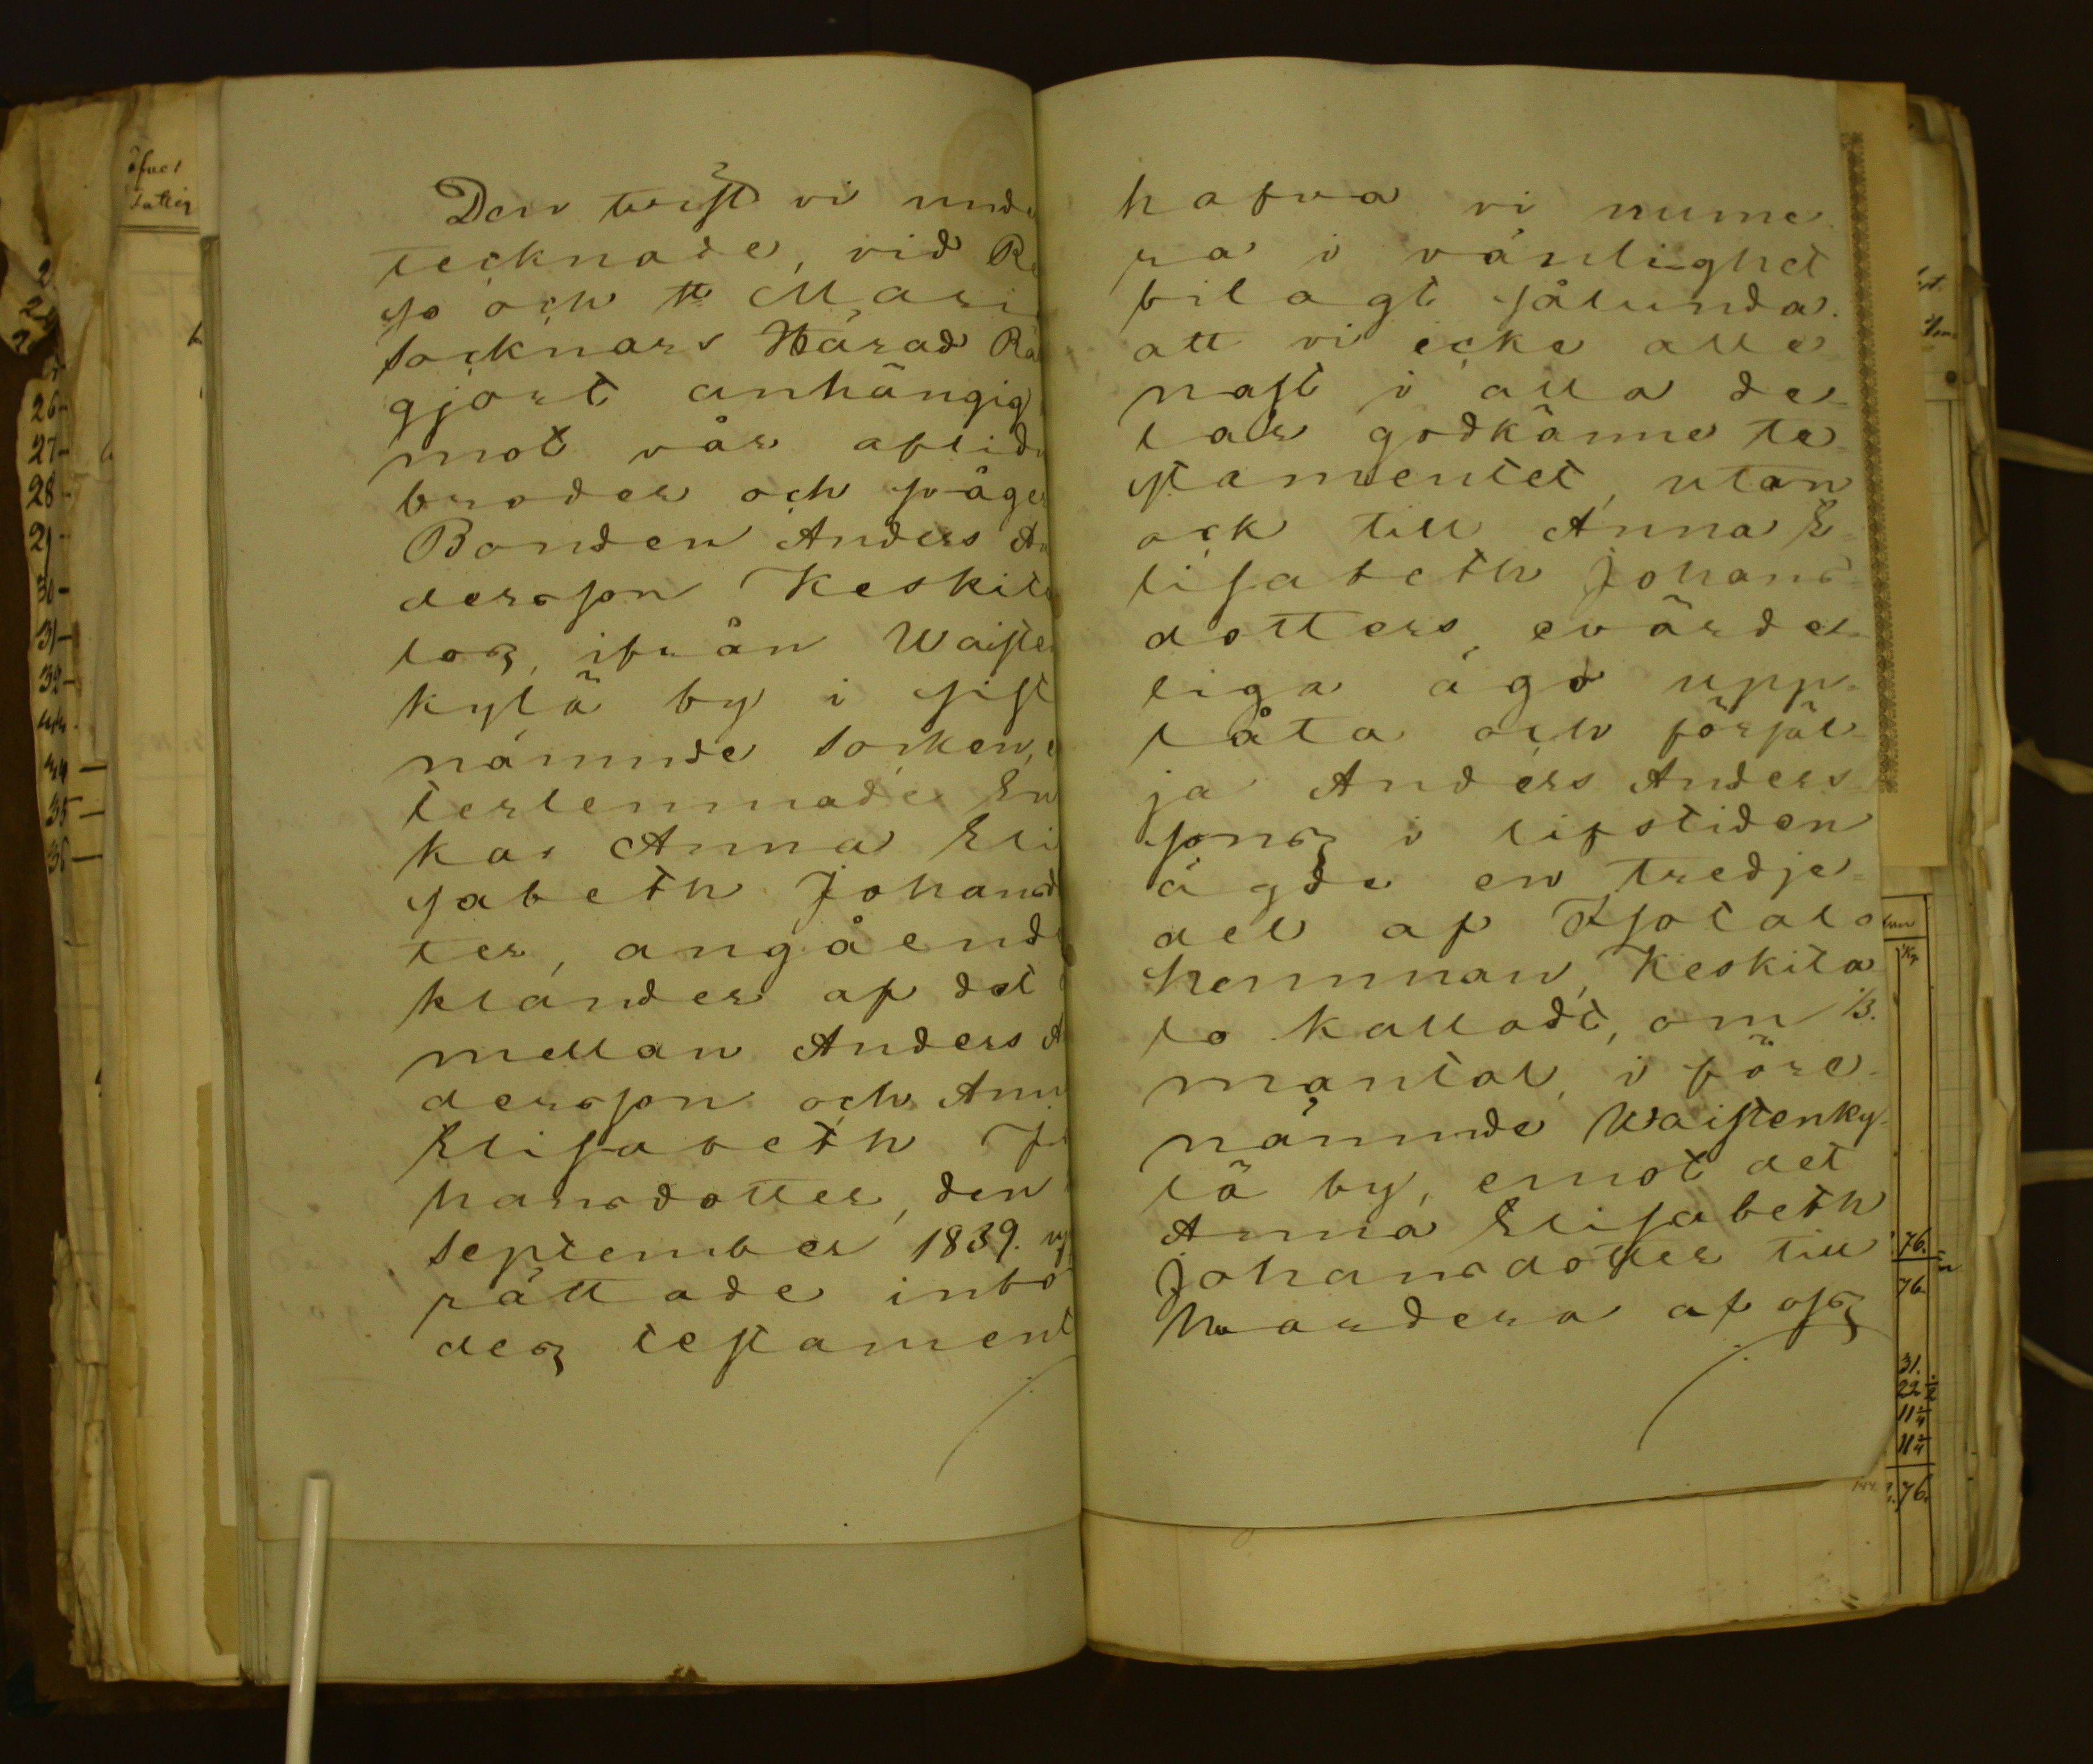 Den twist vi unde
tecknade, vid Re
so och tt Mari
Socknars Härad Rä
gjort anhängig
mot vår aflidn
broder och svåger
Bonden Anders An
dersson Keskita
los, ifrån Waiste
kylä by i sist
nämnde Socken, e
terlemnade En
ka, Anna Eli
sabeth Johansd
ter, angående
klander af det
mellan Anders A
dersson och Ann
Elisabeth Jo
hansdotter, den
September 1839. up
rättade inbö
des testament
hafva vi nume
ra i vänlighet
bilagt sålunda.
att vi icke alle
nast i alla de-
lar godkänne te-
stamentet, utan
ock till Anna E=
lisabeth Johans
dotters, evärde-
liga ägo upp=
låta och försäl-
ja Anders Anders
sons i lifstiden
ägde en tredje=
del af Isotalo
hemman, Keskita
lo kalladt, om 1/3.
mantal, i före-
nämnde Waistenky-
lä by, emot det
Anna Elisabeth
Johansdotter till
hvardera af oss
öfver
26-
27-
28-
29-
30-
31-
32-
35-
36-
76.
76.
31.
22 1/2
11 1/4
11 1/4
76.